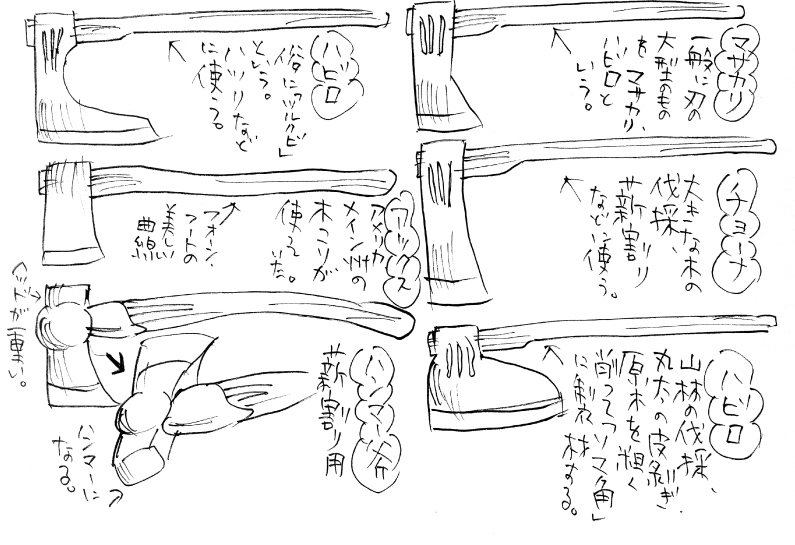 マサカリ
一般に刃の
大型のもの
をマサカリ、
ハビロと
いう。
チョーナ
大きな木の
伐採、
薪割り
などに使う。
ハビロ
山林の伐採、
丸太の皮剥ぎ.
原木を粗く
削って「ソマ角」
に製材する。
ハビロ
俗に「ツルクビ」
という。
ハツリなど
に使う。
ワックス
アメリカ
メイン州の
木こりが
使っていた。
フォーン・
フートの
美しい
曲線
ハンマー斧
薪割り用
ヘッドが重い。
ハンマーに
なる。